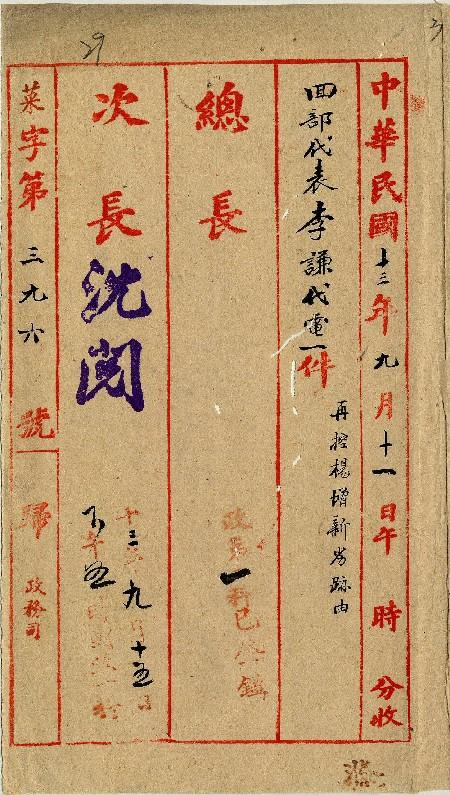 中華民國十三年九月十一日午 時 分收
回部代表李謙代電一件
再控楊增新劣跡由
總長
次長 沈閱
十三年九月十五日
下午五
菜字第三九六號 歸政務司
29